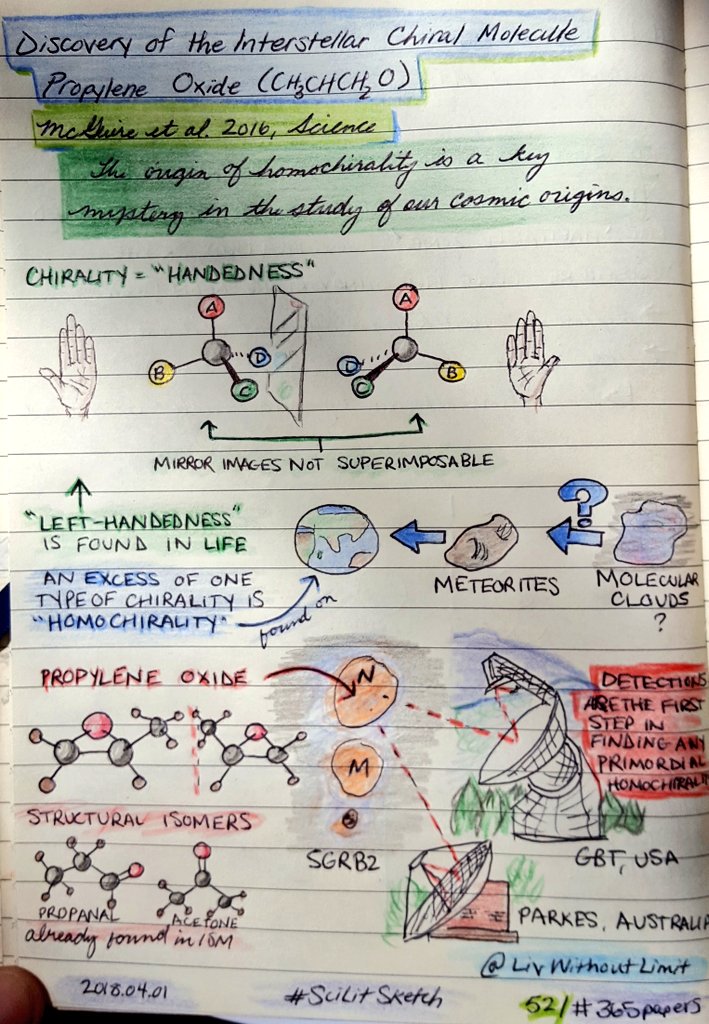 Discovery of the Interstellar Chiral Molecule
Propylene Oxide (CH₃CHCH₂O)
McGuire et al. 2016, Science
The origin of homochirality is a key
mystery in the study of our cosmic origins.
CHIRALITY = "HANDEDNESS"
A
D
B
C
A
D
B
C
MIRROR IMAGES NOT SUPERIMPOSABLE
"LEFT-HANDEDNESS"
IS FOUND IN LIFE
AN EXCESS OF ONE
TYPE OF CHIRALITY IS
"HOMOCHIRALITY"
found on
METEORITES
?
MOLECULAR
CLOUDS
?
PROPYLENE OXIDE
N
M
SGRB2
DETECTIONS
ARE THE FIRST
STEP IN
FINDING ANY
PRIMORDIAL
HOMOCHIRALI
GBT, USA
STRUCTURAL ISOMERS
PROPANAL
ACETONE
already found in ISM
PARKES, AUSTRALIA
@LivWithoutLimit
2018.04.01
#SciLitSketch
52/#365papers